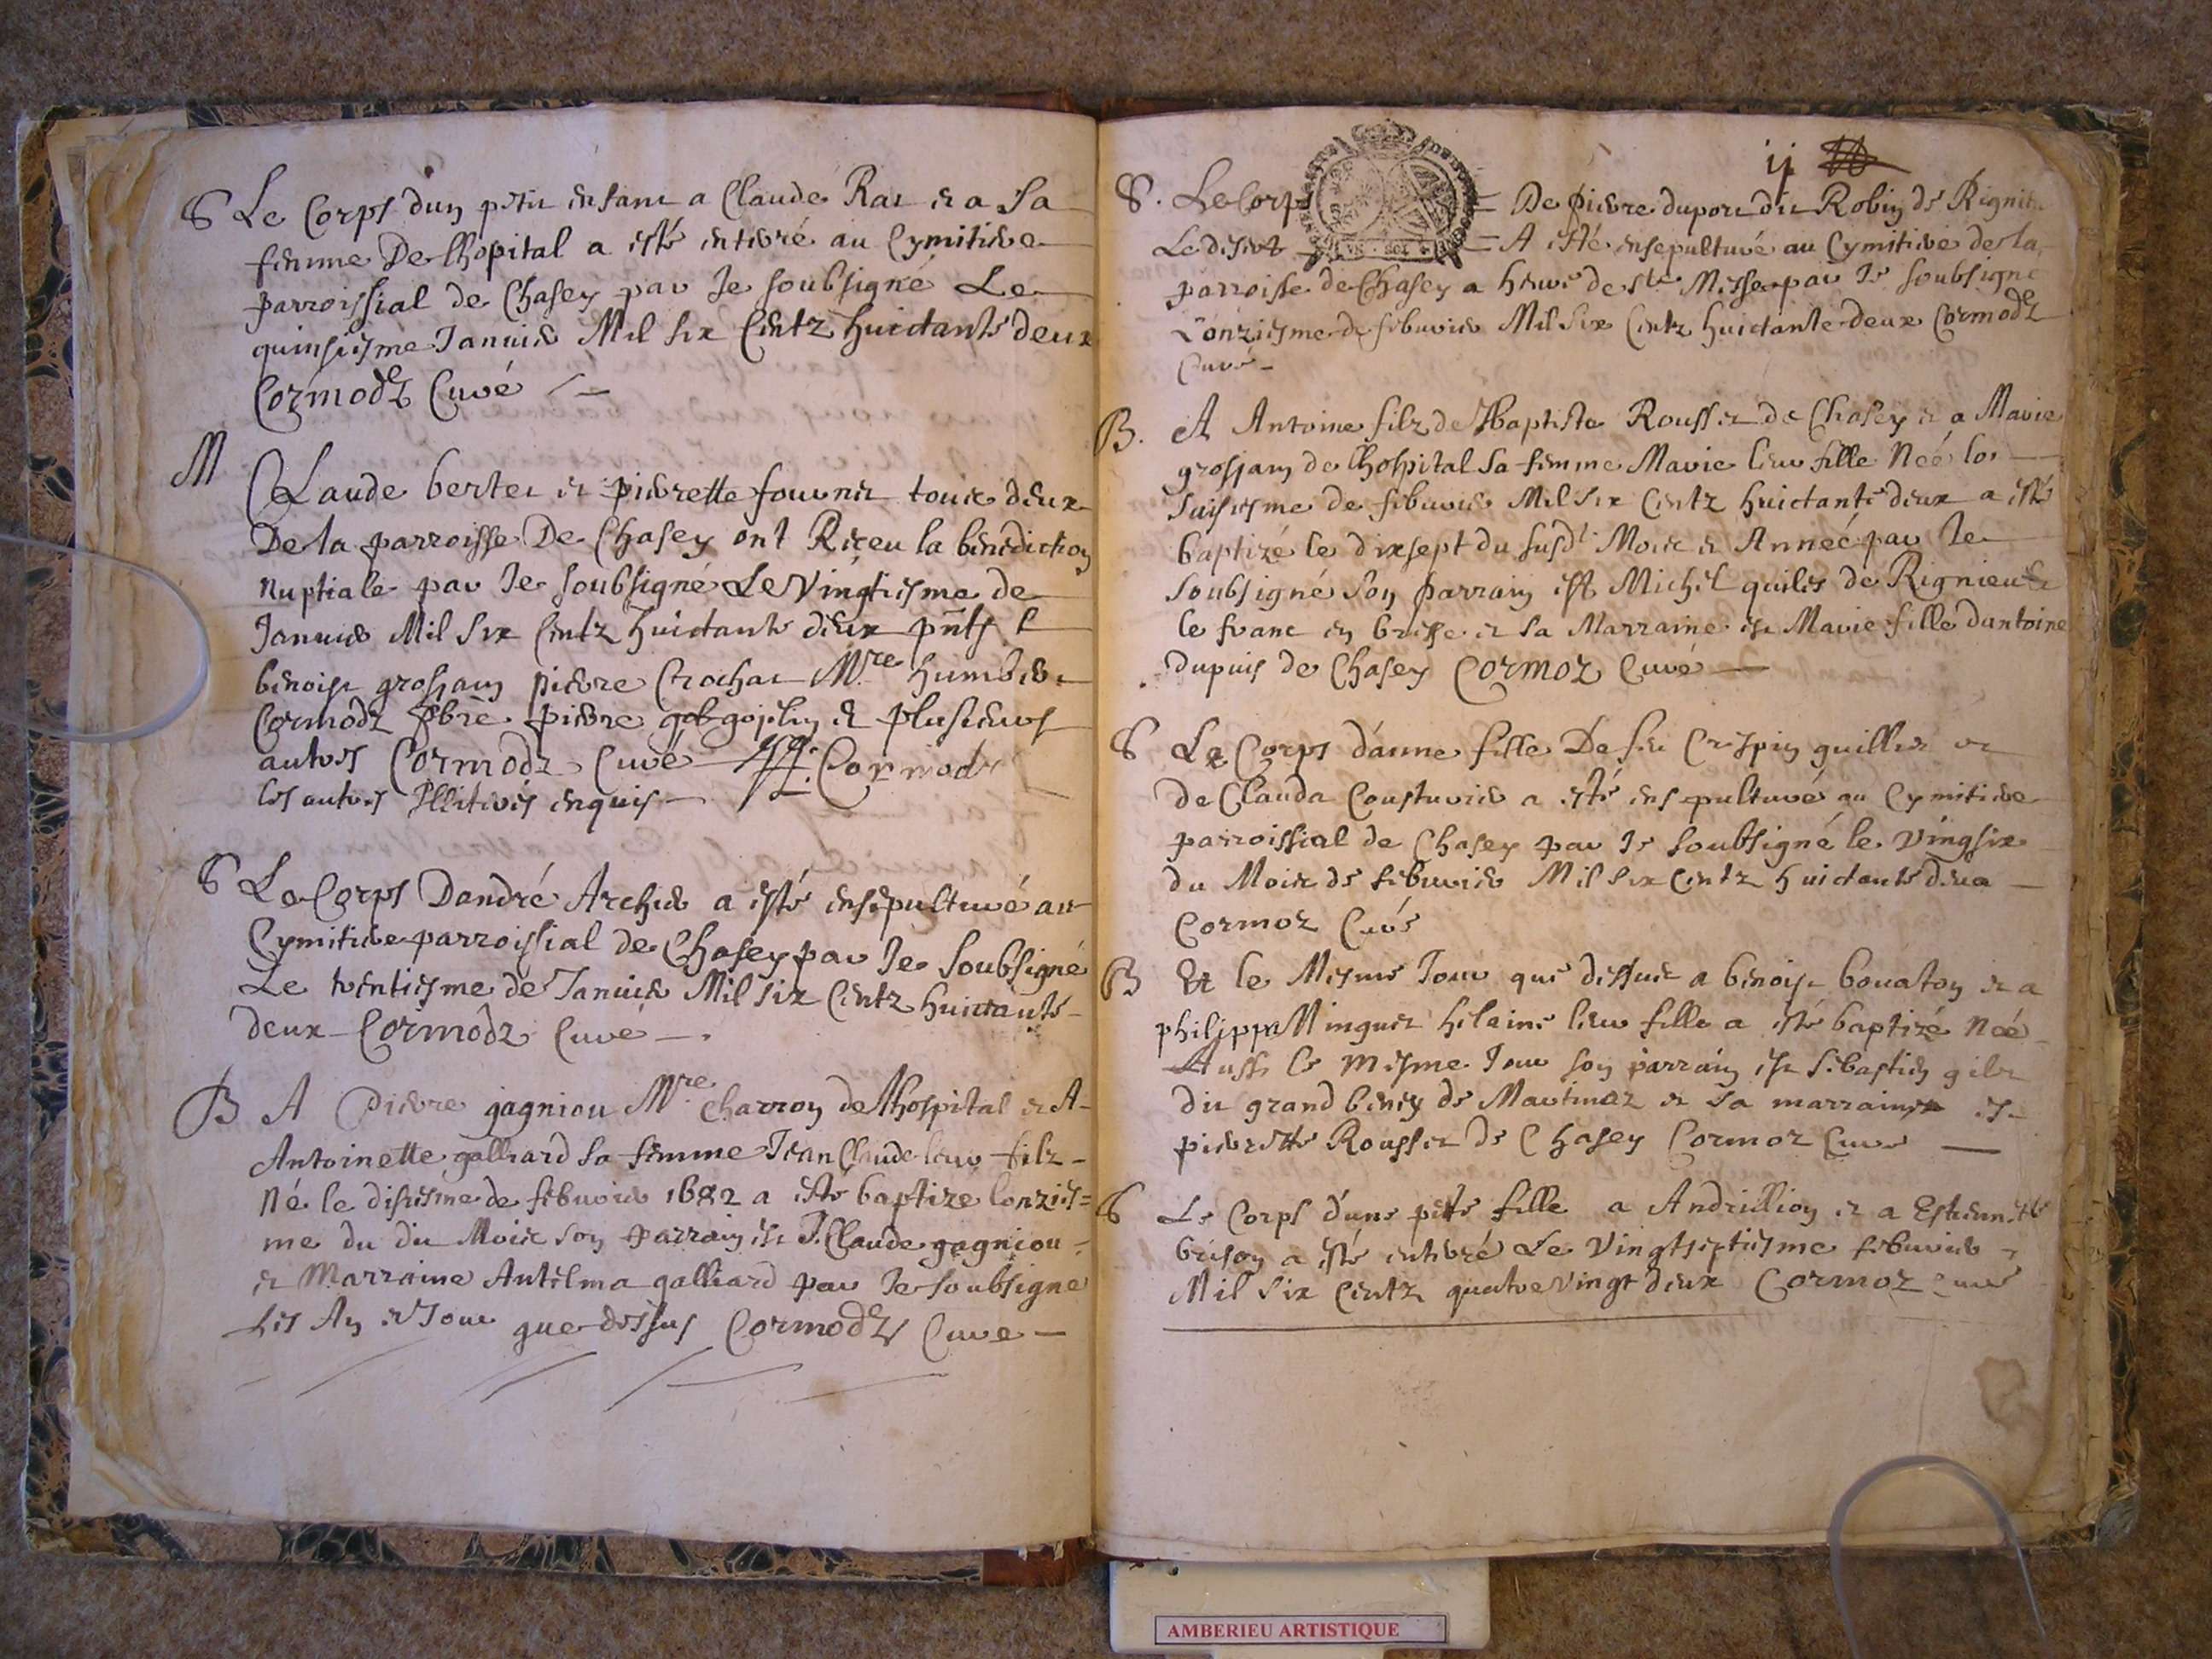 S Le Corps dun petit enfant a Claude Rat et a Sa
femme De lhopital a esté enterré au Cymitiere
parroissial de Chasey par Je soubsigné Le
quinsiesme Janvier Mil six Centz huictante deux
Cormodz Curé
M Claude bertet et pierrette fournier touts deux
De la parroisse De Chasey ont Receu la benediction
Nuptiale par Je soubsigné Le Vingtiesme de
Janvier Mil Six Centz huictante deux pnts
benoist grosjam pierre Crochat Mre humbert
Cormodz pbre pierre gojphy et plusieurs
autres Cormodz Curé Cormodz
les autres Illiterés enquis
S Le Corps Dandré Archier a esté ensepulturé au
Cymitiere parroissial de Chasey par Je Soubsigné
Le trentiesme de Janvier Mil six Centz huictante
deux Cormodz Curé
B A Pierre gagniou Mre Charron de lhospital et A
Antoinette galliard Sa femme Jean Claude leur filz
Né le disiesme de febvrier 1682 a esté baptizé lonzies=
me du dit Mois son parrain est J. Claude gagniou
et Marraine Antelma galliard par Je soubsigné
Les An et Jour que dessus Cormodz Curé
ij
S. Le Corps De pierre duport dit Robin de Rignieu
Le desert A esté ensepulturé au Cymitiere de la
parroisse de Chasey a heure de ste Messe par Je soubsigné
Lonziesme de febvrier Mil Six Centz huictante deux Cormodz
Curé
B. A Antoine filz de Jbaptiste Rousset de Chasey et a Marie
grosjam de lhospital Sa femme Marie leur fille Neé le
saisiesme de febvrier Mil Six Centz huictante deux a esté
baptizé le dixsept du susdt Mois et Anneé par Je
soubsigné son parrain est Michel quilet de Rignieu
le franc en bresse et sa Marraine est Marie fille dantoine
dupuis de Chasey Cormoz Curé
S Le Corps danne fille De feu Crespin guillet et
de Clauda Cousturier a esté ensepulturé au Cymitiere
parroissial de Chasey par Je soubsigné le Vingsix
du Mois de febvrier Mil Six Centz huictante deux
Cormoz Curé
B Et le Mesme Jour que dessus a benoist bouaton et a
philippa Minguet helaine leur fille a esté baptizé Neé
Aussi le mesme Jour son parrain est sebastien gilet
dit grand beney de Martinaz et sa marraine est
pierrette Rousset de Chasey Cormoz Curé
S Le Corps dune petite fille a Andrillion et a Estiennette
brison a esté enterré Le Vingtseptiesme febvrier
Mil Six Centz quatre Vingt deux Cormoz Curé
AMBERIEU ARTISTIQUE